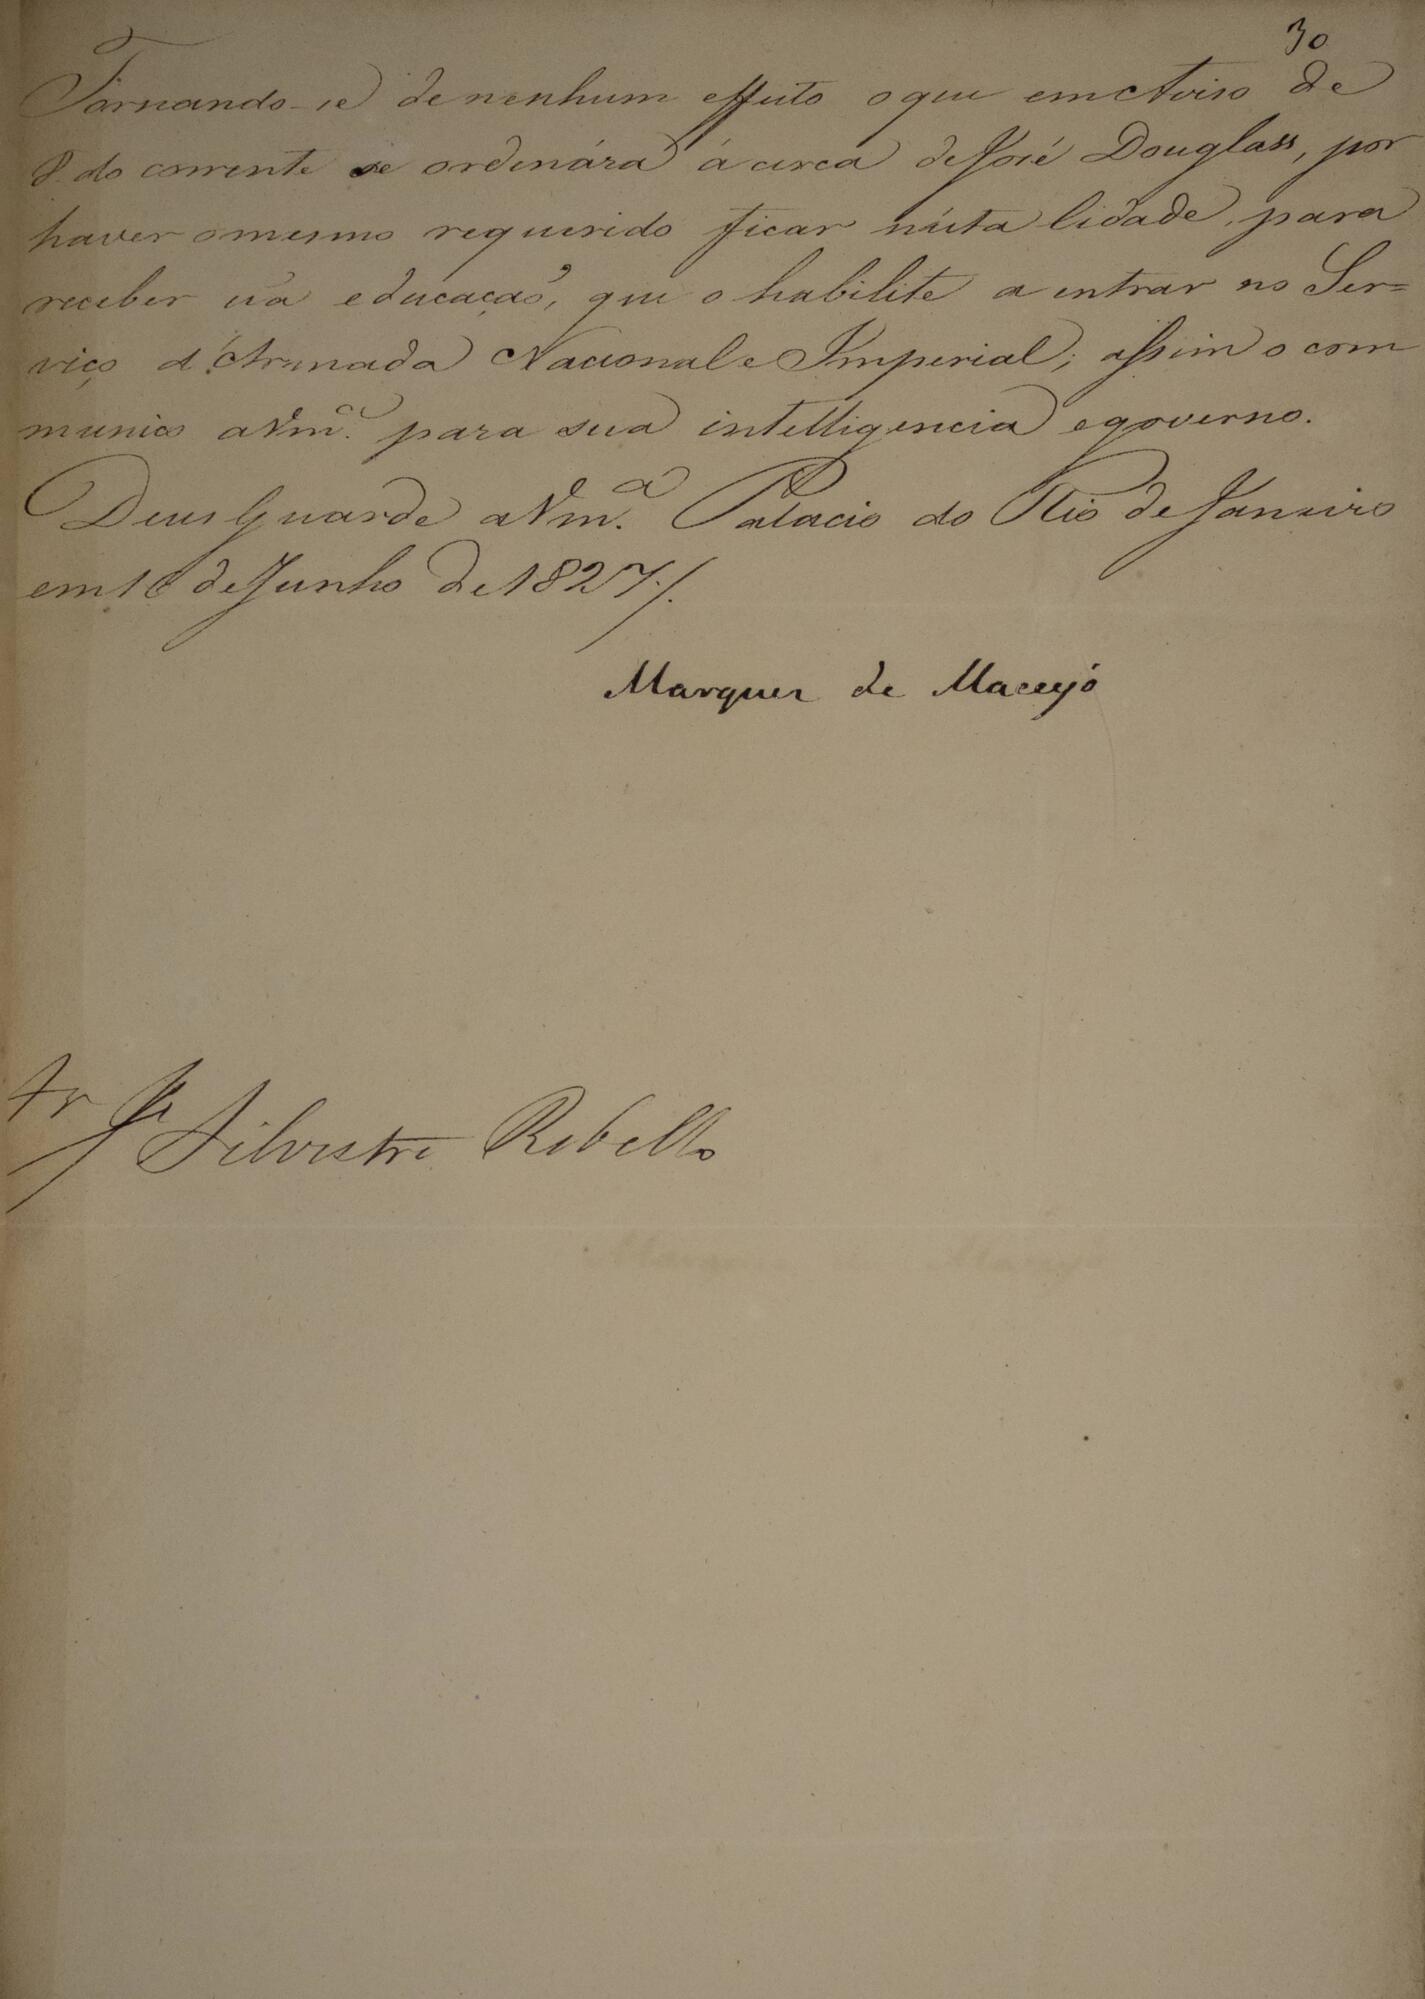 30
Tornando-se de nenhum effeito o que em Aviso de
8 do corrente se ordenára ácerca de José Douglass, por
haver o mesmo requerido ficar n'esta Cidade, para
receber ũa educação, que o habilite a entrar no Ser=
viço d'Armada Nacional e Imperial; assim o com
munico a Vm.ce para sua intelligencia e governo.
Deus Guarde a Vm.ce Palacio do Rio de Janeiro
em 16 de Junho de 1827./.
Marquez de Maceyó
Sr Je Silvestre Rebello